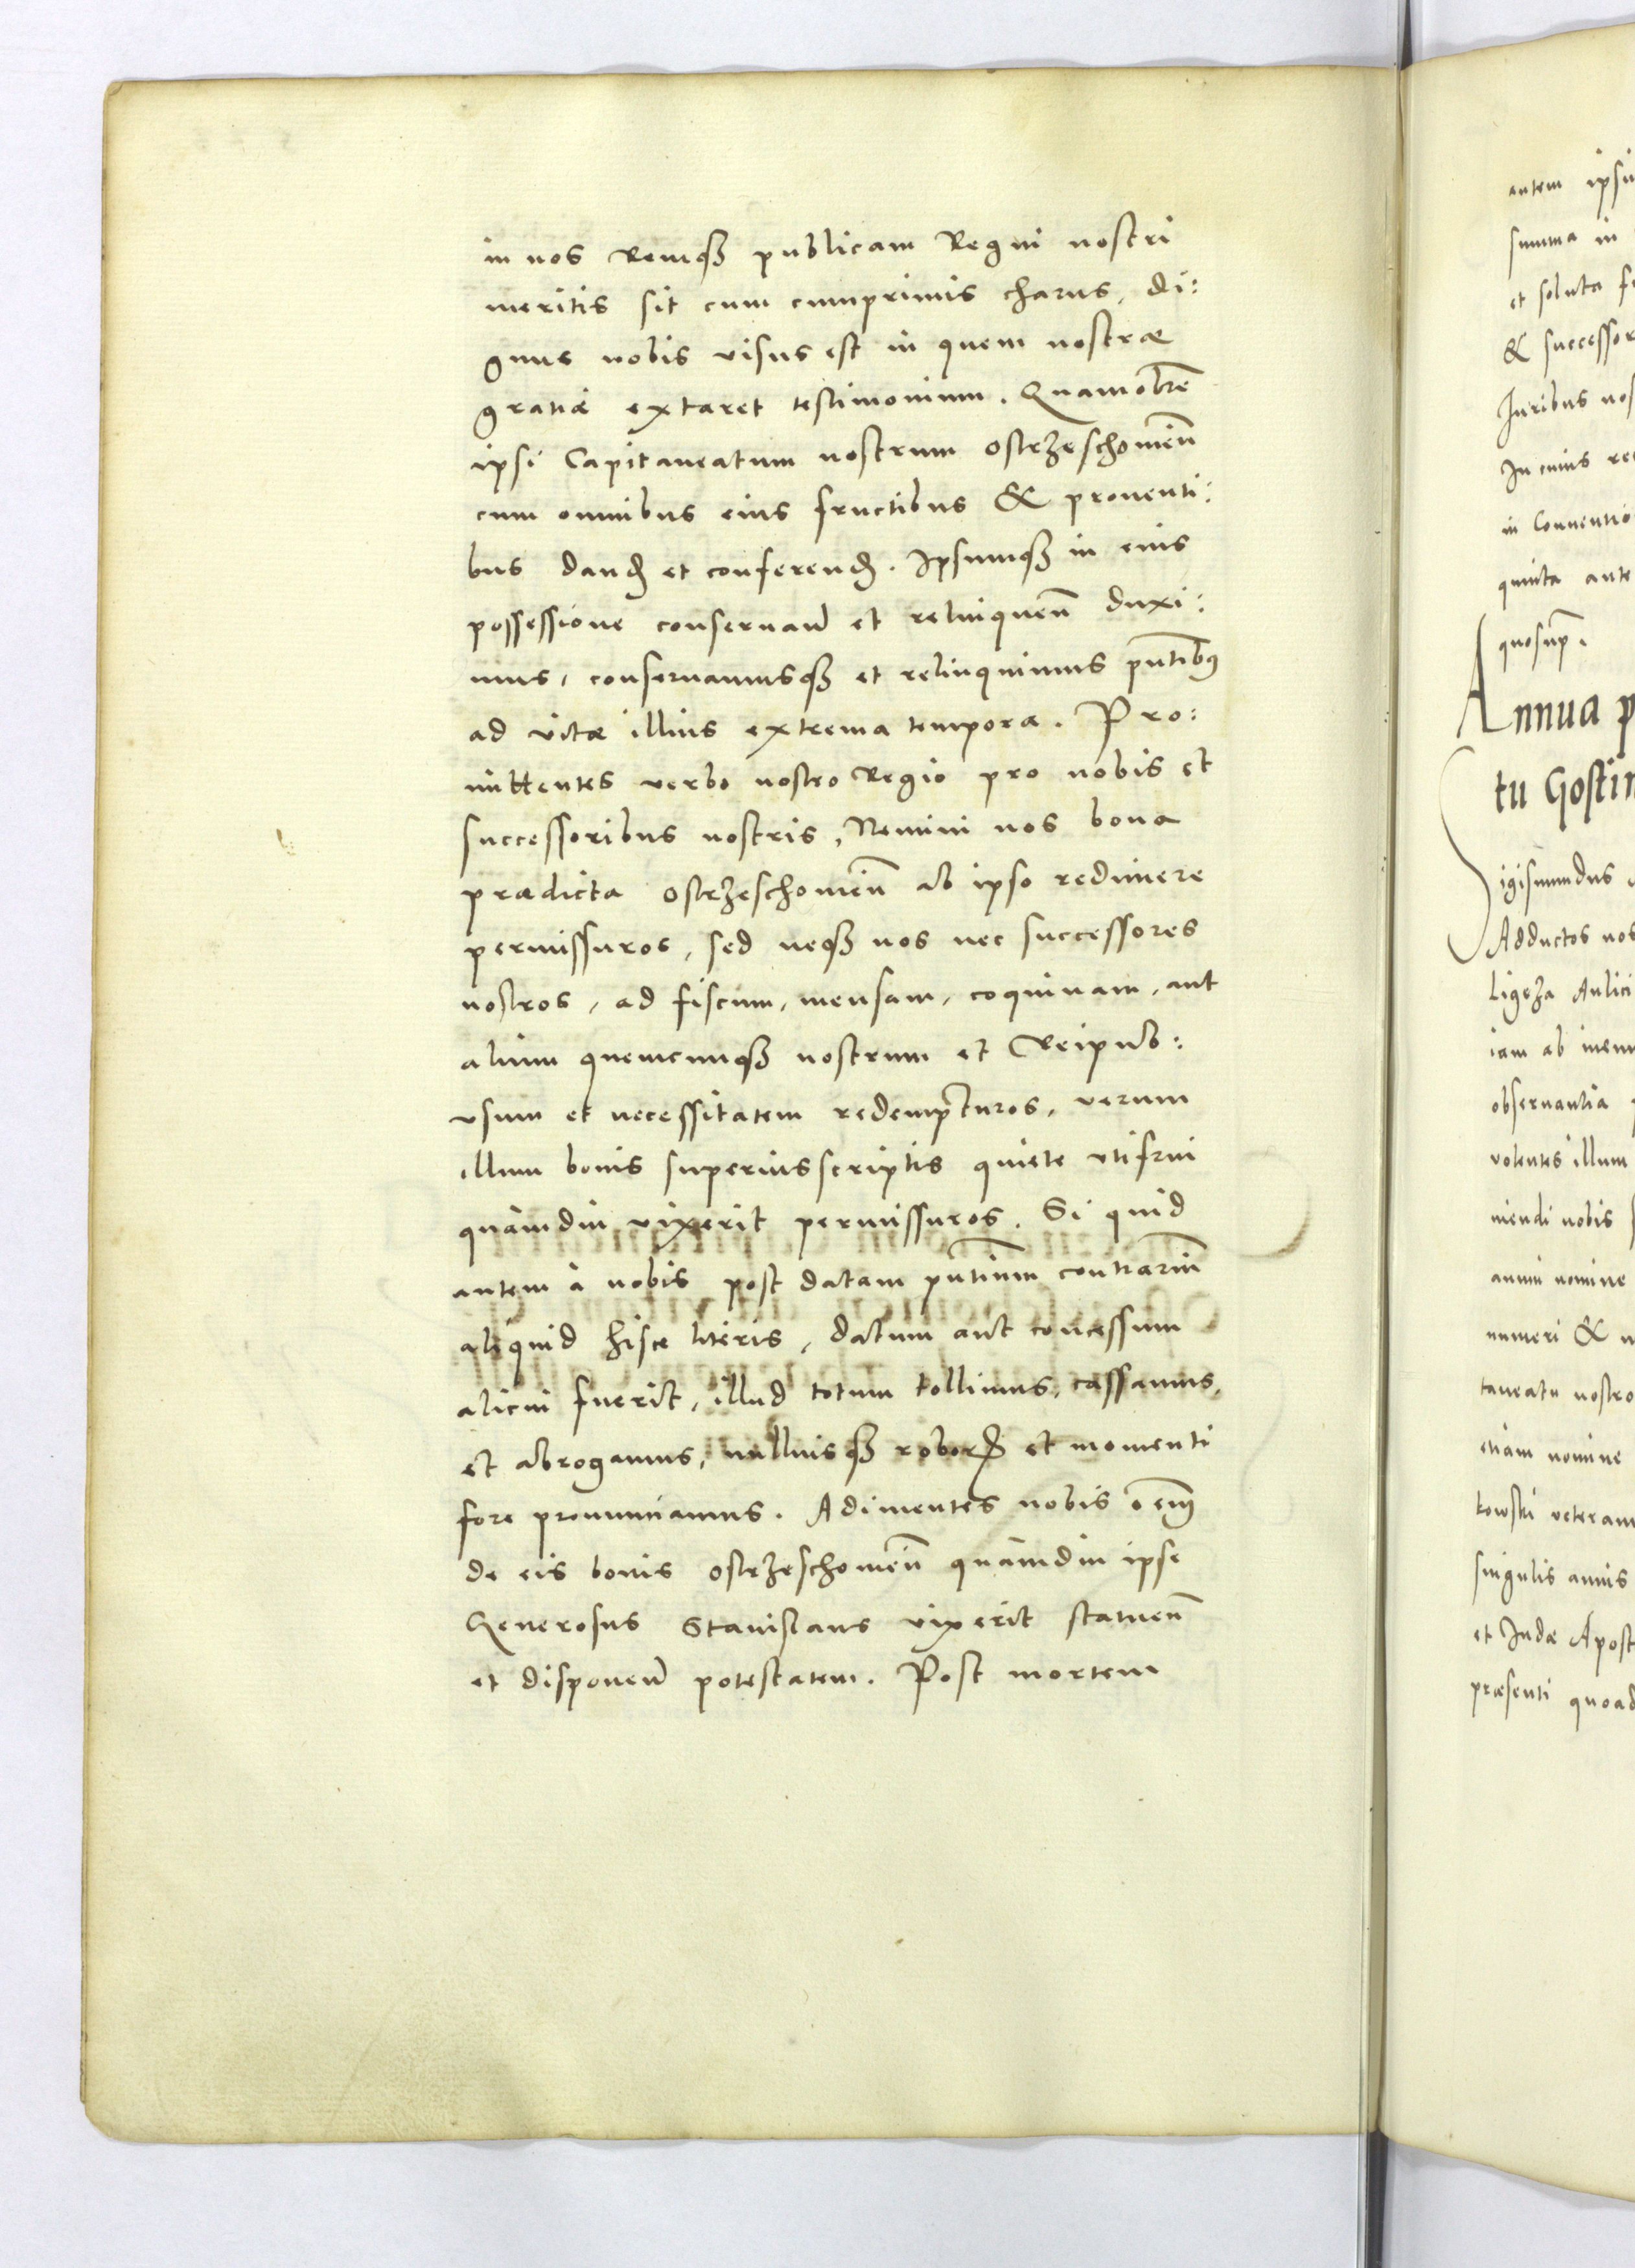 in nos Remq₃ publicam Regni nostri
meritis sit cum cumprimis charus, di:
gnus nobis visus est in quem nostræ
gratiæ extaret testimonium. Quamobrē
ipsi Capitaneatum nostrum Ostrzeschouień̄
cum omnibus eius fructibus & prouenti:
bus dand et conferend. Ipsumq₃ in eius
possessione conseruand et relinquen̄ duxi:
mus, conseruamusq₃ et relinquimus pn̄tibus
ad vitæ illius extrema tempora. Pro:
mittentes verbo nostro Regio pro nobis et
successoribus nostris, Nemini nos bona
prædicta Ostrzeschouien̄ ab ipso redimere
permissuros, sed neq₃ nos nec successores
nostros, ad fiscum, mensam, coquinam, aut
alium quemcunq₃ nostrum et Reipub:
vsum et necessitatem redempturos, verum
illum bonis superiusscriptis quiete vtifrui
quamdiu vixerit permissuros. Si quid
autem à nobis post datam pn̄tium contrariū
aliquid hisce literis, datum aut concessum
alicui fuerit, illud totum tollimus, cassamus,
et abrogamus, nulliusq₃ robor̄ et momenti
fore pronunciamus. Adimentes nobis oēm
de eis bonis Ostrzeschouien̄ quamdiu ipse
Generosus Stanislaus vixerit statuen̄
et disponend potestatem. Post mortem
autem
summa in
et soluta
& successor
Iuribus
In cuius
in Conuentio
quinta ante
quosup̄.
Annua
tu Gostin
Sigismundus
Adductos nos
Ligęza Aulici
iam ab
obseruantia
volentes illum
niendi nobis
annui nomine
numeri &
taneatu nostro
etiam nomine
kowski veteram
singulis annis
et Iudæ Apost
præsenti quoad